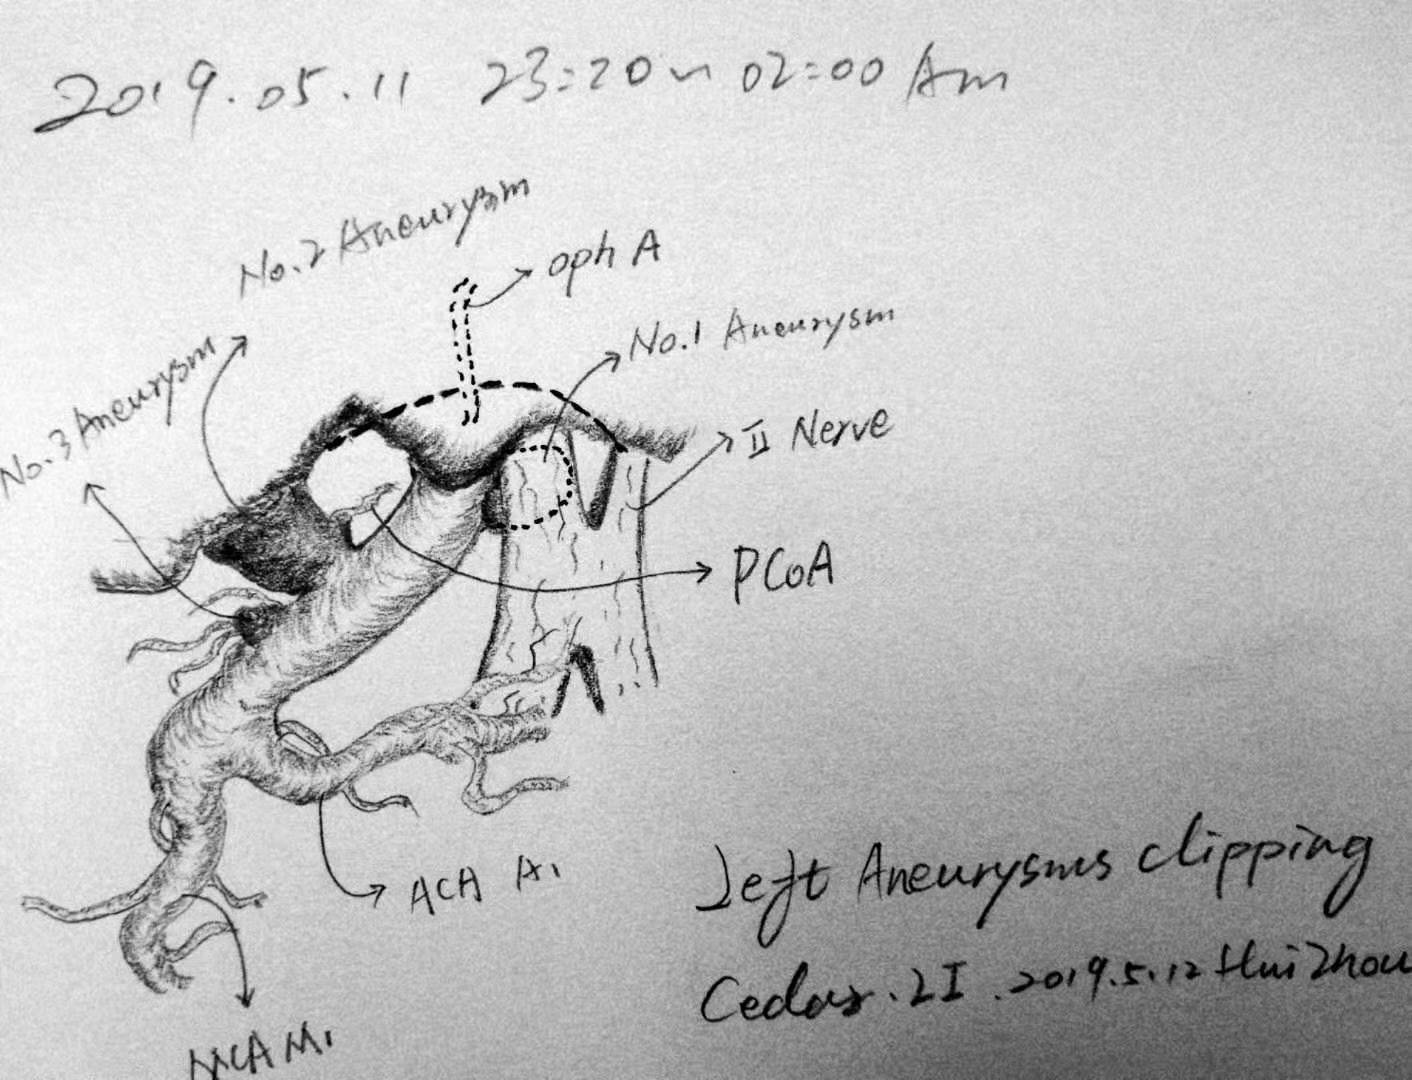 2019.05.11 23:20~02:00 Am
No.2 Aneurysm
oph A
No.1 Aneurysm
No.3 Aneurysm
II Nerve
PCoA
ACA A1
MCA M1
Left Aneurysms clipping
Cedar.LI.2019.5.12 HuiZhou